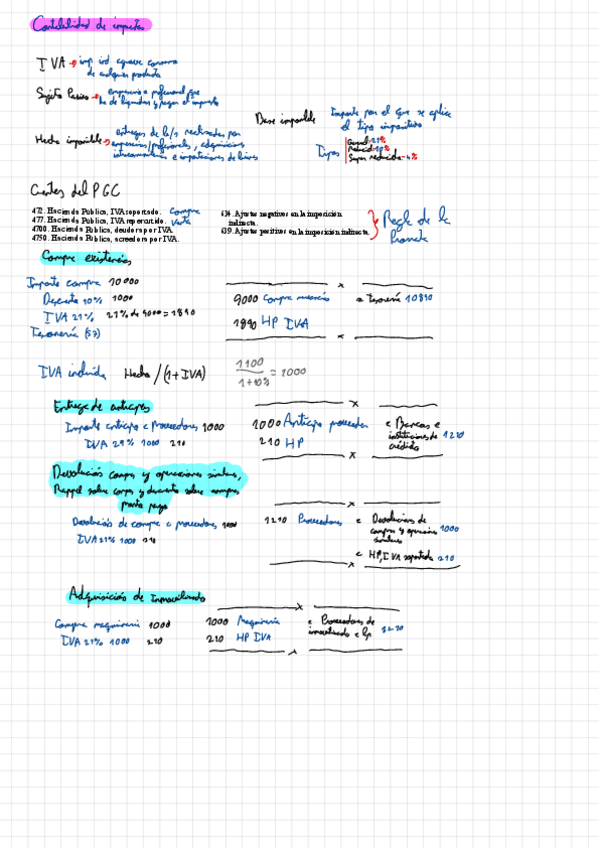 Contabilidad de impuestos
IVA → imp. ind. que grava consumo
de cualquier producto
Sujeto Pasivo → empresario o profesional que
ha de liquidar y pagar el impuesto
Hecho imponible → entregas de b/s realizadas por
empresarios/profesionales, adquisiciones
intracomunitarias e importaciones de bienes
Base imponible Importe por el que se aplica
el tipo impositivo
Tipos General 21%
Reducido 10%
Super reducido 4%
Cuentas del PGC
472. Hacienda Pública, IVA soportado. Compra
477. Hacienda Pública, IVA repercutido. Venta
4700. Hacienda Pública, deudora por IVA.
4750. Hacienda Pública, acreedora por IVA.
634. Ajustes negativos en la imposición
indirecta.
639. Ajustes positivos en la imposición indirecta.
Regla de la
Prorrata
Compra existencias
Importe compra 10000
Descuento 10% 1000
IVA 21% 21% de 9000 = 1890
Tesorería (57)
9000 Compra mercancías a Tesorería 10890
1890 HP IVA
IVA incluido Hecho / (1 + IVA) 1100 / 1+10% = 1000
Entrega de anticipos
Importe anticipo a Proveedores 1000
IVA 21% 1000 210
1000 Anticipo proveedor a Bancos e
instituciones de
crédito 1210
210 HP
Devolución compras y operaciones similares,
Rappel sobre compras y descuento sobre compras
pronto pago
Devolución de compra a proveedores 1000
IVA 21% 1000 210
1210 Proveedores a Devoluciones de
compras y operaciones
similares 1000
a HP, IVA soportado 210
Adquisición de Inmovilizado
Compra maquinaria 1000
IVA 21% 1000 210
1000 Maquinaria a Proveedores de
inmovilizado a 1210
210 HP IVA